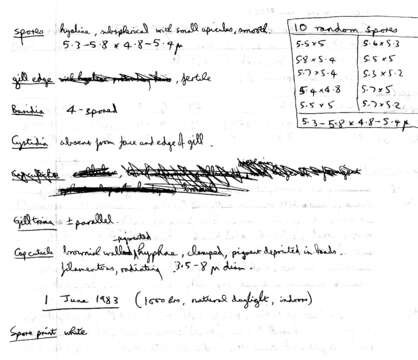 spores hyaline, subspherical with small apiculus, smooth.
5·3-5·8 × 4·8-5·4 µ
10 random spores
5·5×5 5·6×5·3
5·8×5·4 5·5×5
5·7×5·4 5·3×5·2
5·4×4·8 5·7×5
5·5×5 5·7×5·2
5·3-5·8×4·8-5·4 µ
gill edge fertile
Basidia 4-spored
Cystidia absent from face and edge of gill.
Gill trama ± parallel
pigmented
Cap cuticle brownish walled hyphae, clamped, pigment deposited in bands.
filamentous, radiating 3·5-8 µ diam.
1 June 1983 (1000 hrs, natural daylight, indoors)
Spore print white